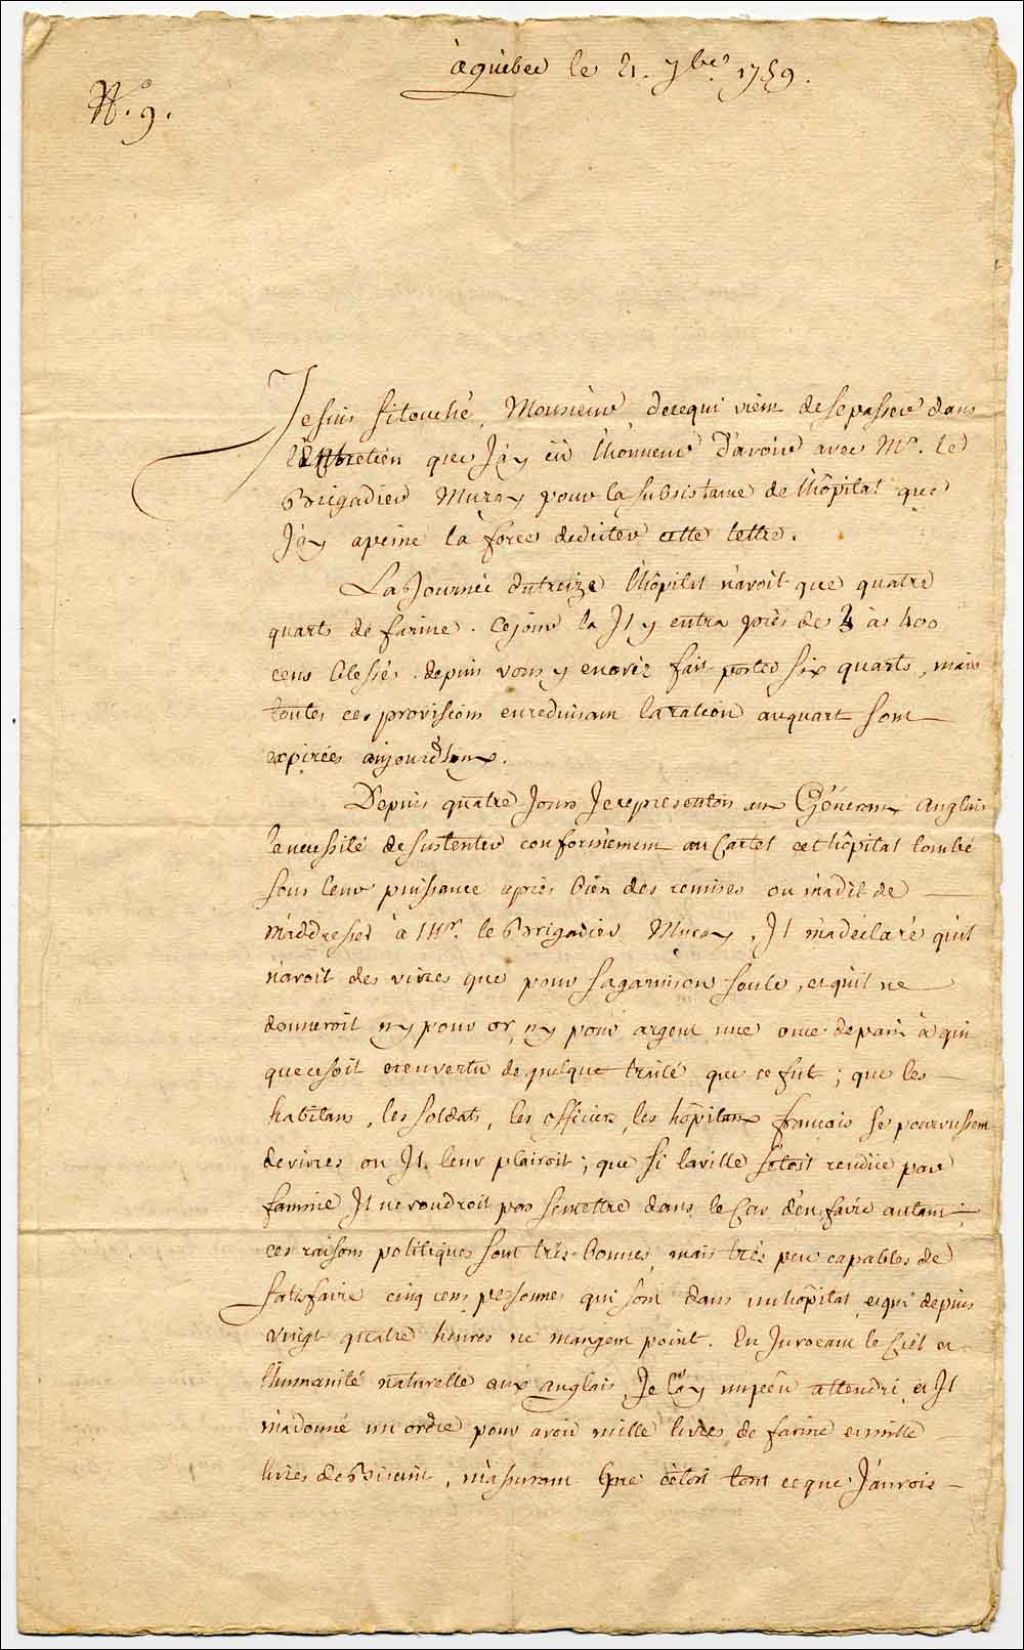 à quèbec le 21. 7bre 1759.
N.° 9.
Je suis si touché, Monsieur de ce qui vient de se passer dans
l'Entretien que J'ay eü l'honneur d'avoir avec Mr. le
Brigadier Muray pour la subsistance de l'hôpital que
J'ay a peine la force de dicter cette lettre.
La Journée du treize l'hôpital n'avoit que quatre
quarts de farine. Ce jour la Il y entra près de 3 à 400
cens blessés. depuis vous y en aviéz fait porter six quarts, mais
toutes ces provisions en reduisant la ration au quart sont
expirées aujourd'huy.
Depuis quatre Jours Je representois aux Généraux anglais
la necessité de sustenter conformement au Cartel cet hôpital tombé
sous leur puissance après bien des remises on m'a dit de
m'addresser à Mr. le Brigadier Muray, Il m'a déclaré qu'il
n'avoit des vivres que pour sa garnison seule, et qu'il ne
donneroit ny pour or, ny pour argent une once de pain à qui
que ce soit et en vertu de quelque traité que ce fut; que les
habitans, les soldats, les officiers, les hôpitaux francais se pourvussent
de vivres ou Il leur plairoit; que si la ville s'étoit rendüe par
famine Il ne voudroit pas se mettre dans le Cas d'en faire autant;
ces raisons politiques sont très bonnes, mais très peu capables de
satisfaire cinq cens personnes qui sont dans un hôpital et qui depuis
vingt quatre heures ne mangent point. En Invocant le Ciel et
l'humanité naturelle aux anglais, Je l'ay un peu attendri, et Il
m'a donné un ordre pour avoir mille livres de farine et mille
livres de Biscuit, m'assurant que c'étoit tout ce que J'aurois